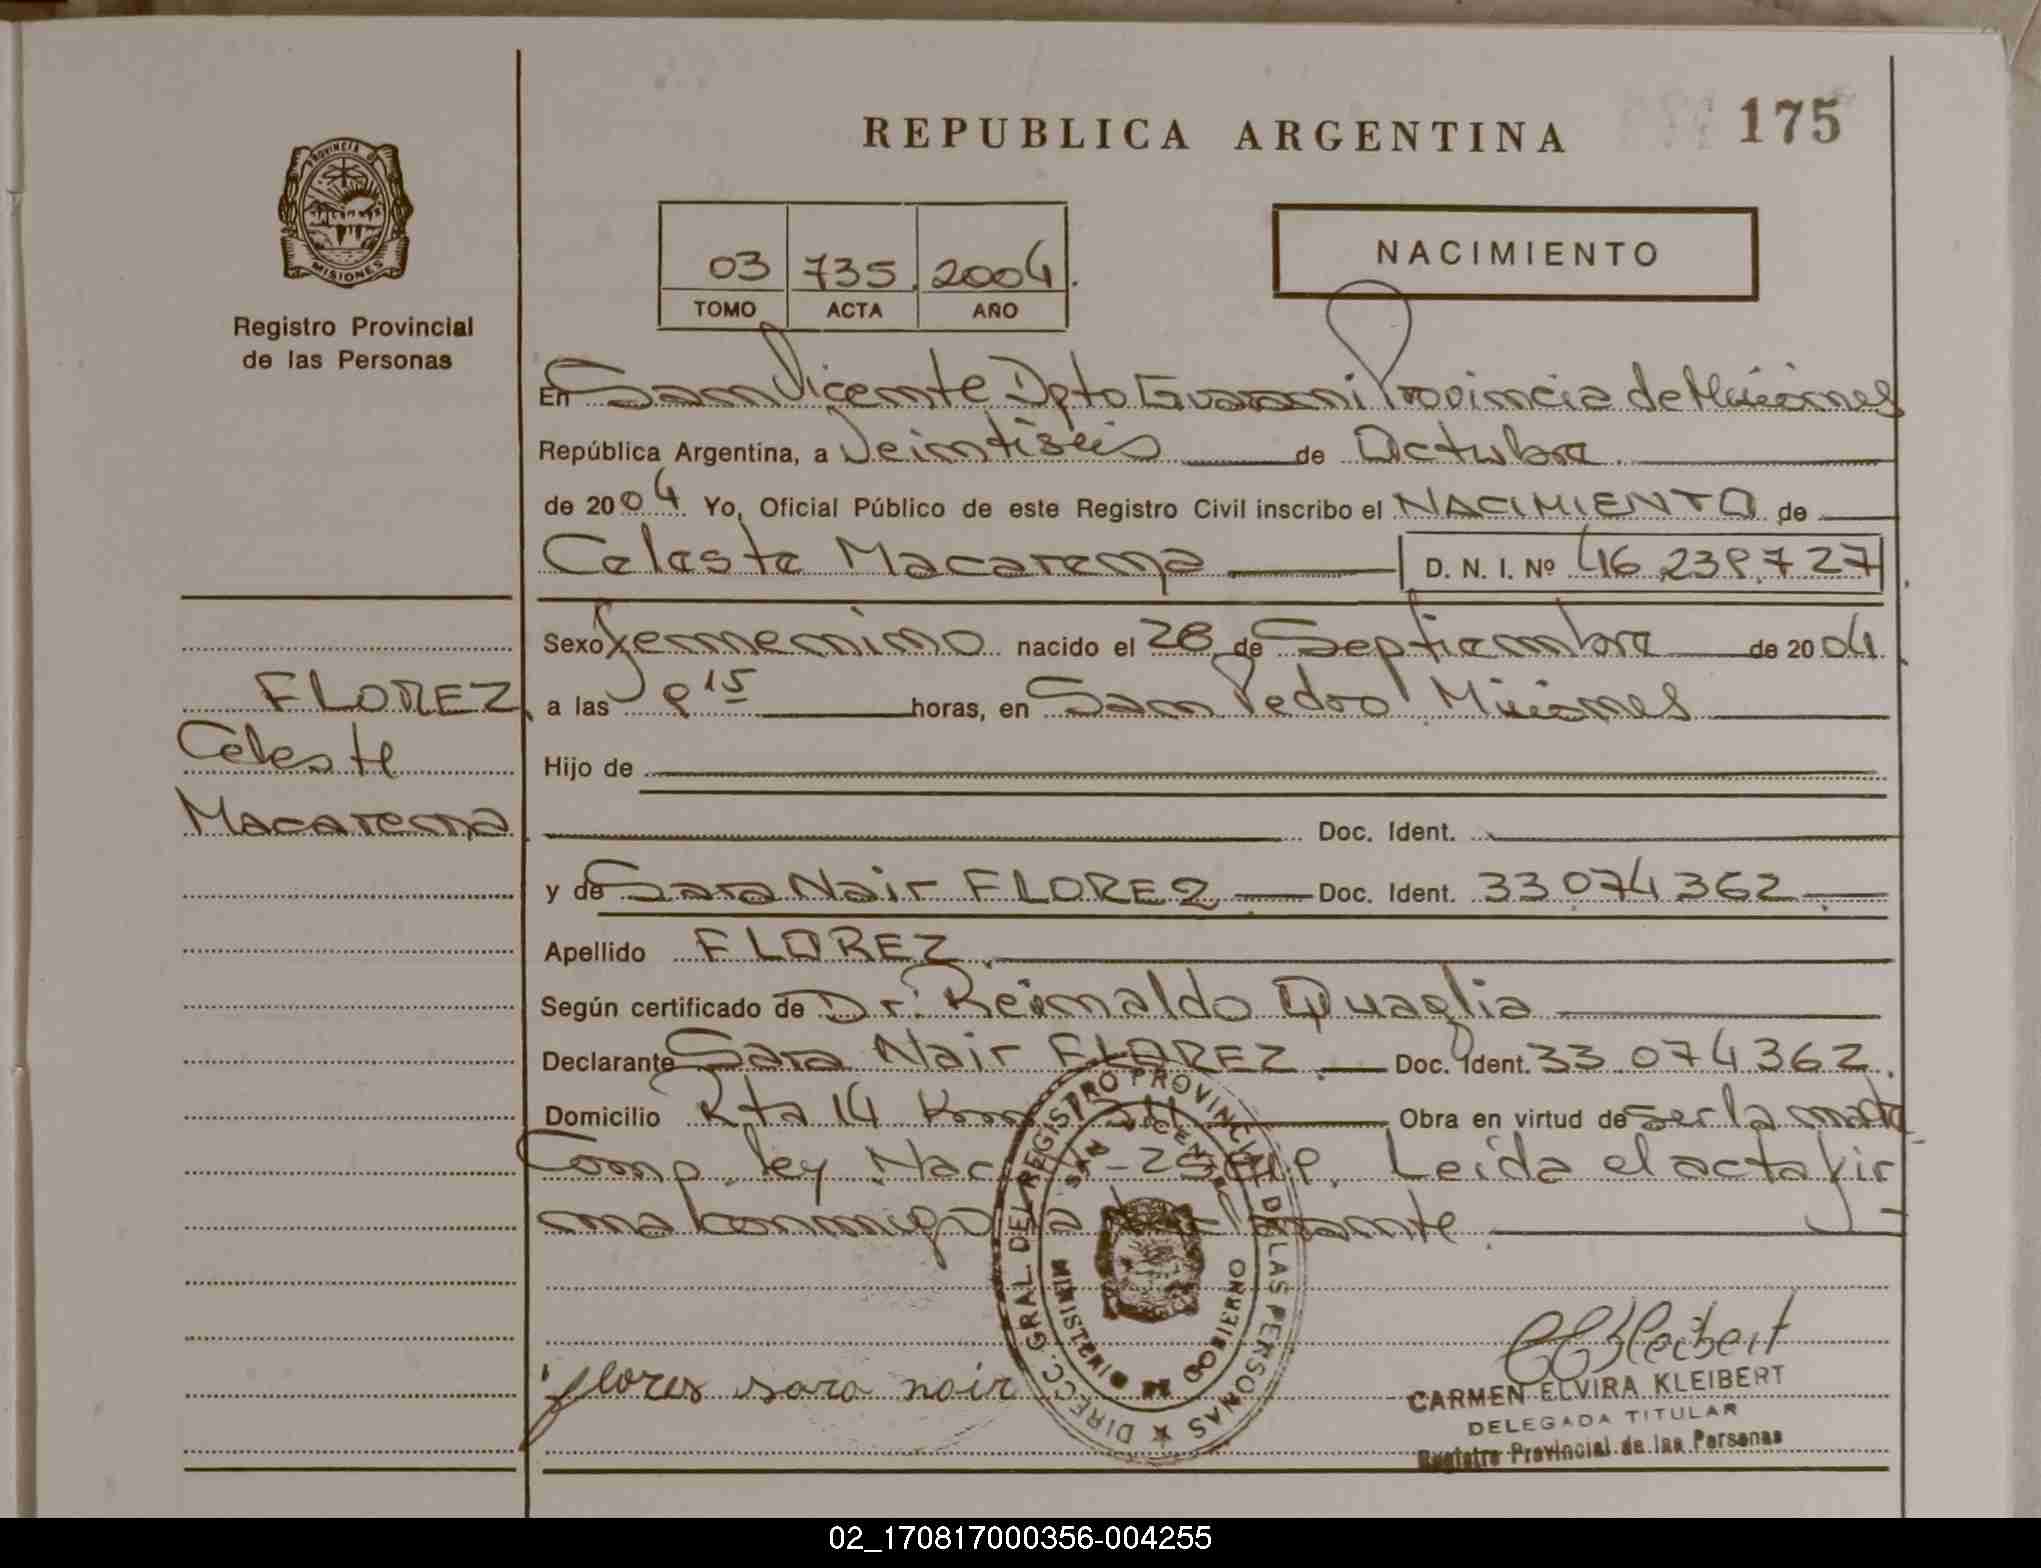 REPUBLICA ARGENTINA 175
PROVINCIA D
MISIONES
Registro Provincial
de las Personas
03 735 2004
TOMO ACTA AÑO
NACIMIENTO
En San Vicente Dpto Guarani Provincia de Misiones
República Argentina, a Veintiseis de Octubre
de 2004 Yo, Oficial Público de este Registro Civil inscribo el NACIMIENTO de
Celeste Macarena D. N. I. Nº
Sexo femenino nacido el 28 de Septiembre de 2004
FLOREZ
a las 8 15 horas, en San Pedro Misiones
Celeste
Hijo de
Macarena
Doc. Ident.
y de Sara Nair FLOREZ Doc. Ident. 33.074.362
Apellido FLOREZ
Según certificado de Dr. Reinaldo Quaglia
Declarante Sara Nair FLOREZ Doc. Ident. 33.074.362.
Domicilio Rta 14 Km Obra en virtud de ser la madre
Comp. ley Nac. Leída el acta fir
ma conmigo la declarante.
DIRECC. GRAL. DEL REGISTRO PROVINCIAL DE LAS PERSONAS
SAN VICENTE
MINISTERIO DE GOBIERNO
flores sara nair
CKleibert
CARMEN ELVIRA KLEIBERT
DELEGADA TITULAR
Registro Provincial de las Personas
02_170817000356-004255